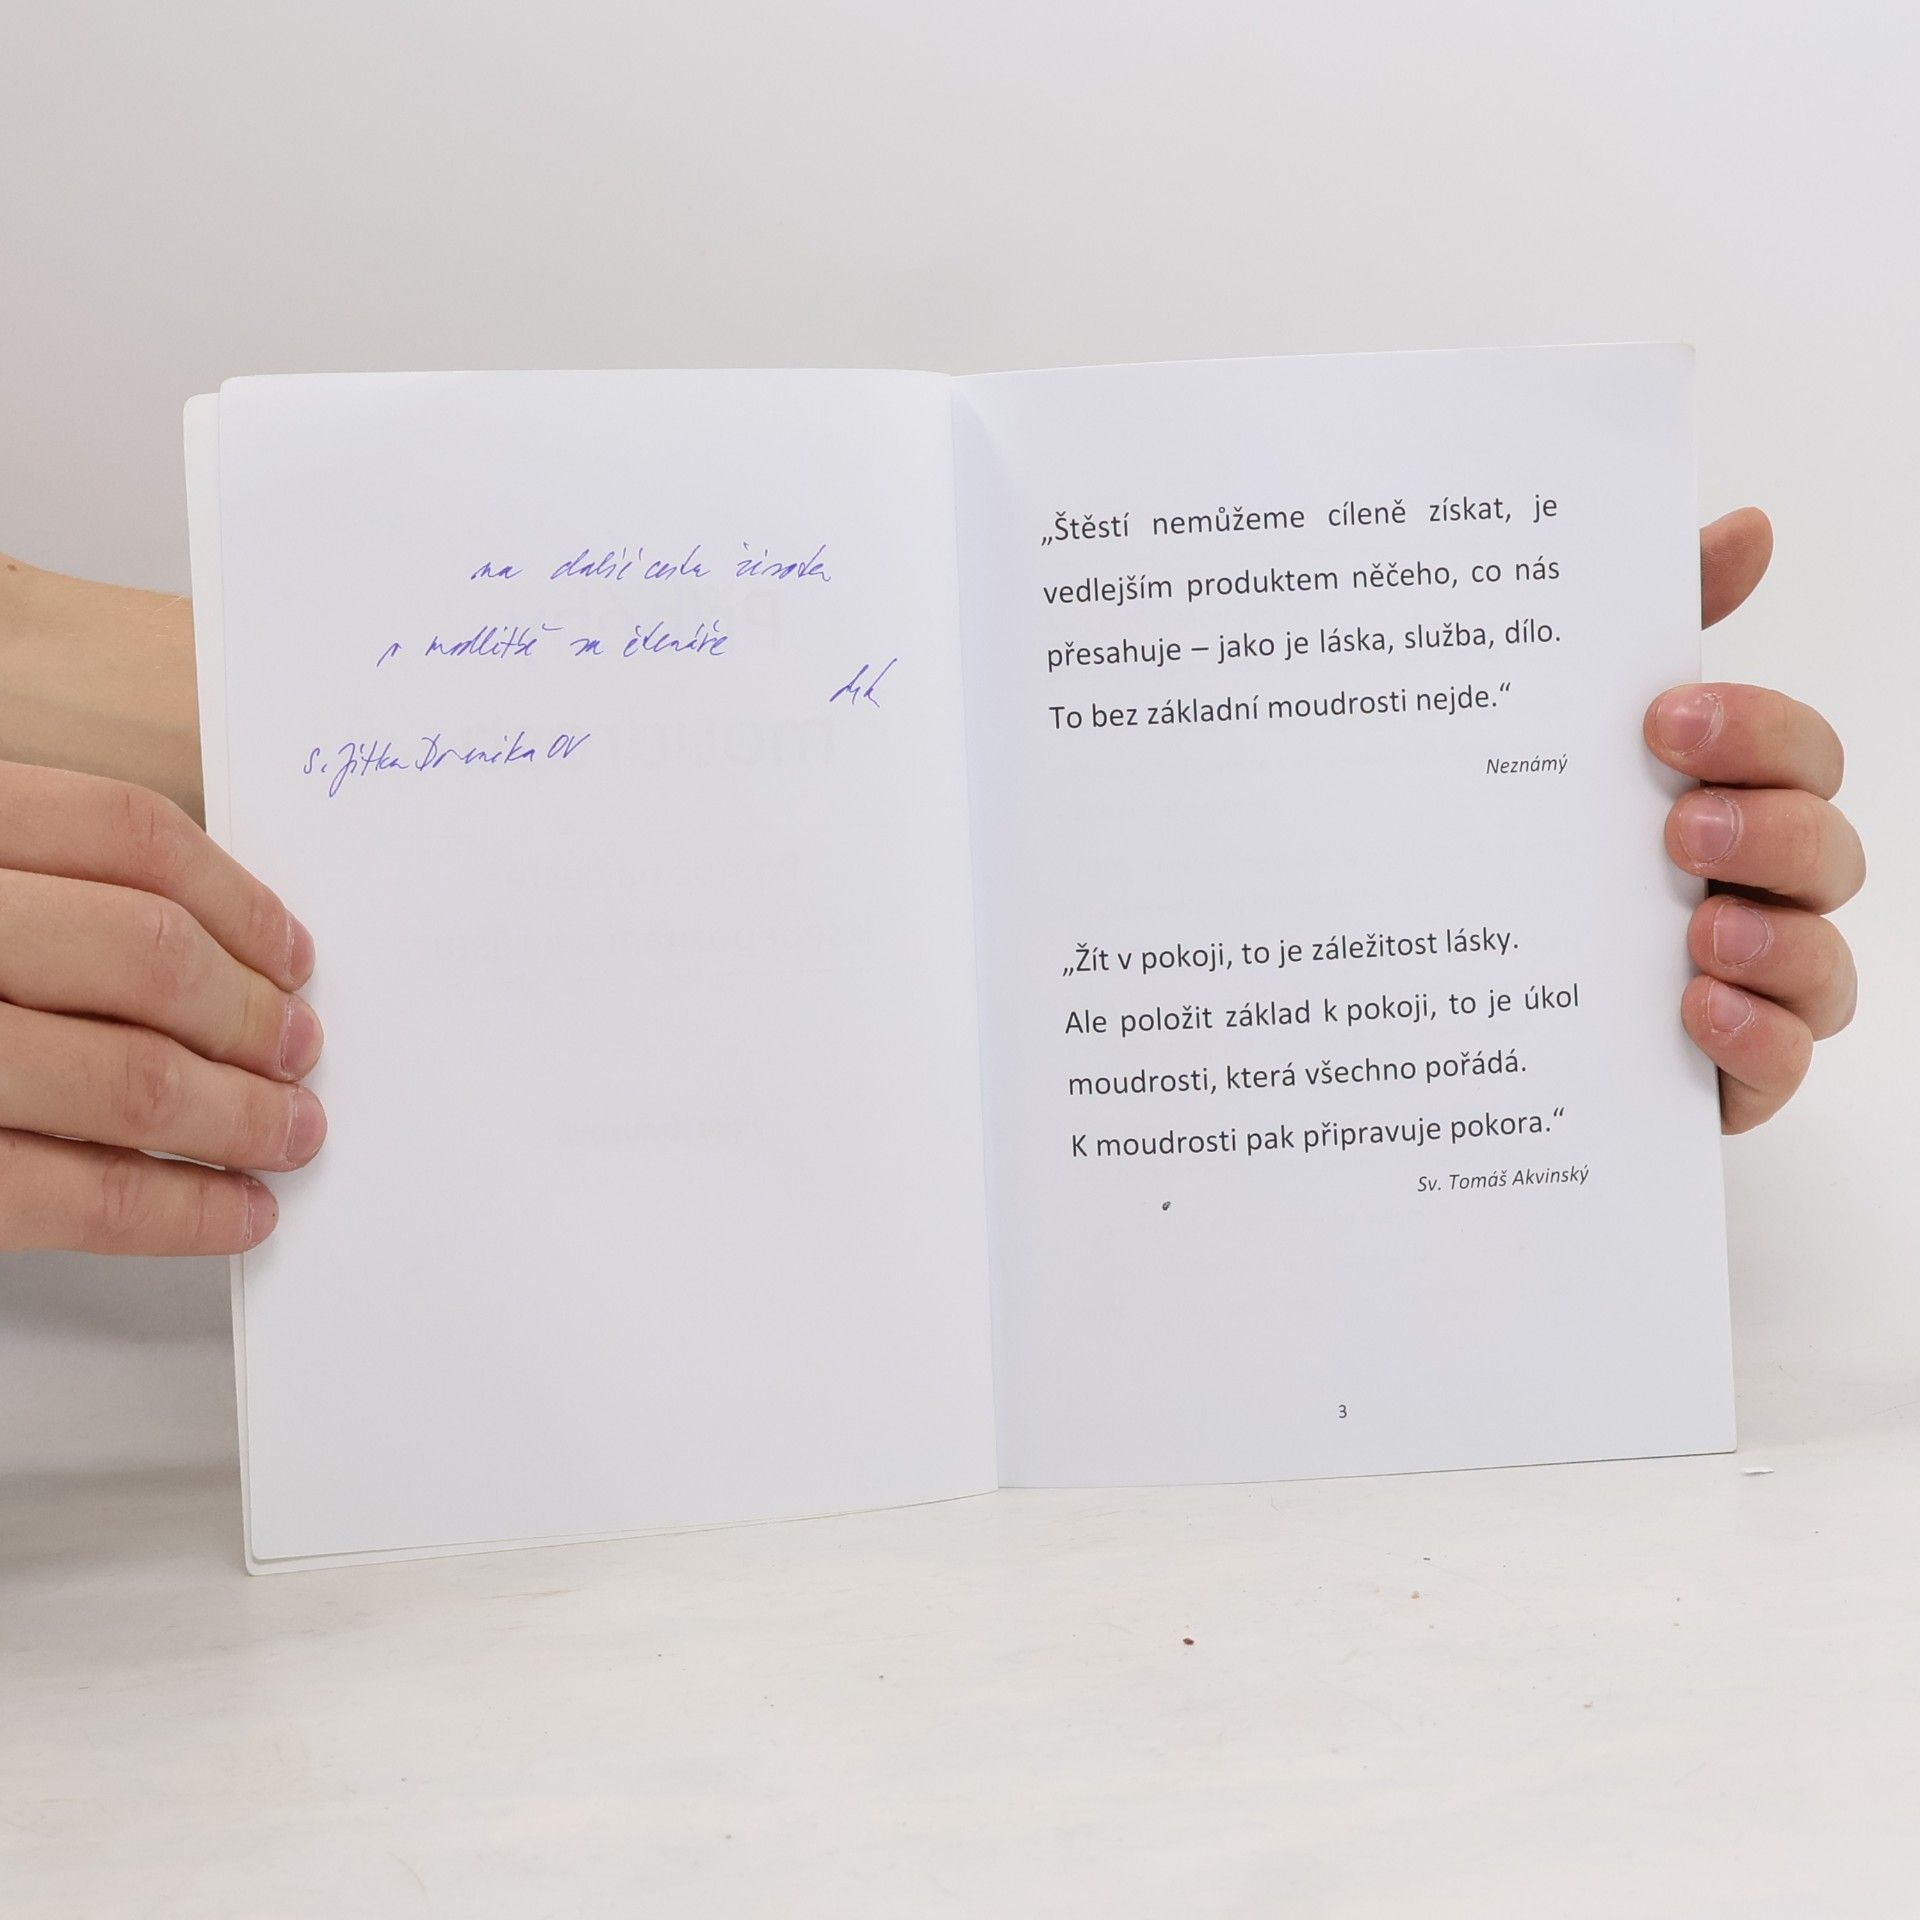 na další cestu života
v modlitbě za čtenáře
S. Jitka Dominika OV
„Štěstí nemůžeme cíleně získat, je
vedlejším produktem něčeho, co nás
přesahuje – jako je láska, služba, dílo.
To bez základní moudrosti nejde.“
Neznámý
„Žít v pokoji, to je záležitost lásky.
Ale položit základ k pokoji, to je úkol
moudrosti, která všechno pořádá.
K moudrosti pak připravuje pokora.“
Sv. Tomáš Akvinský
3